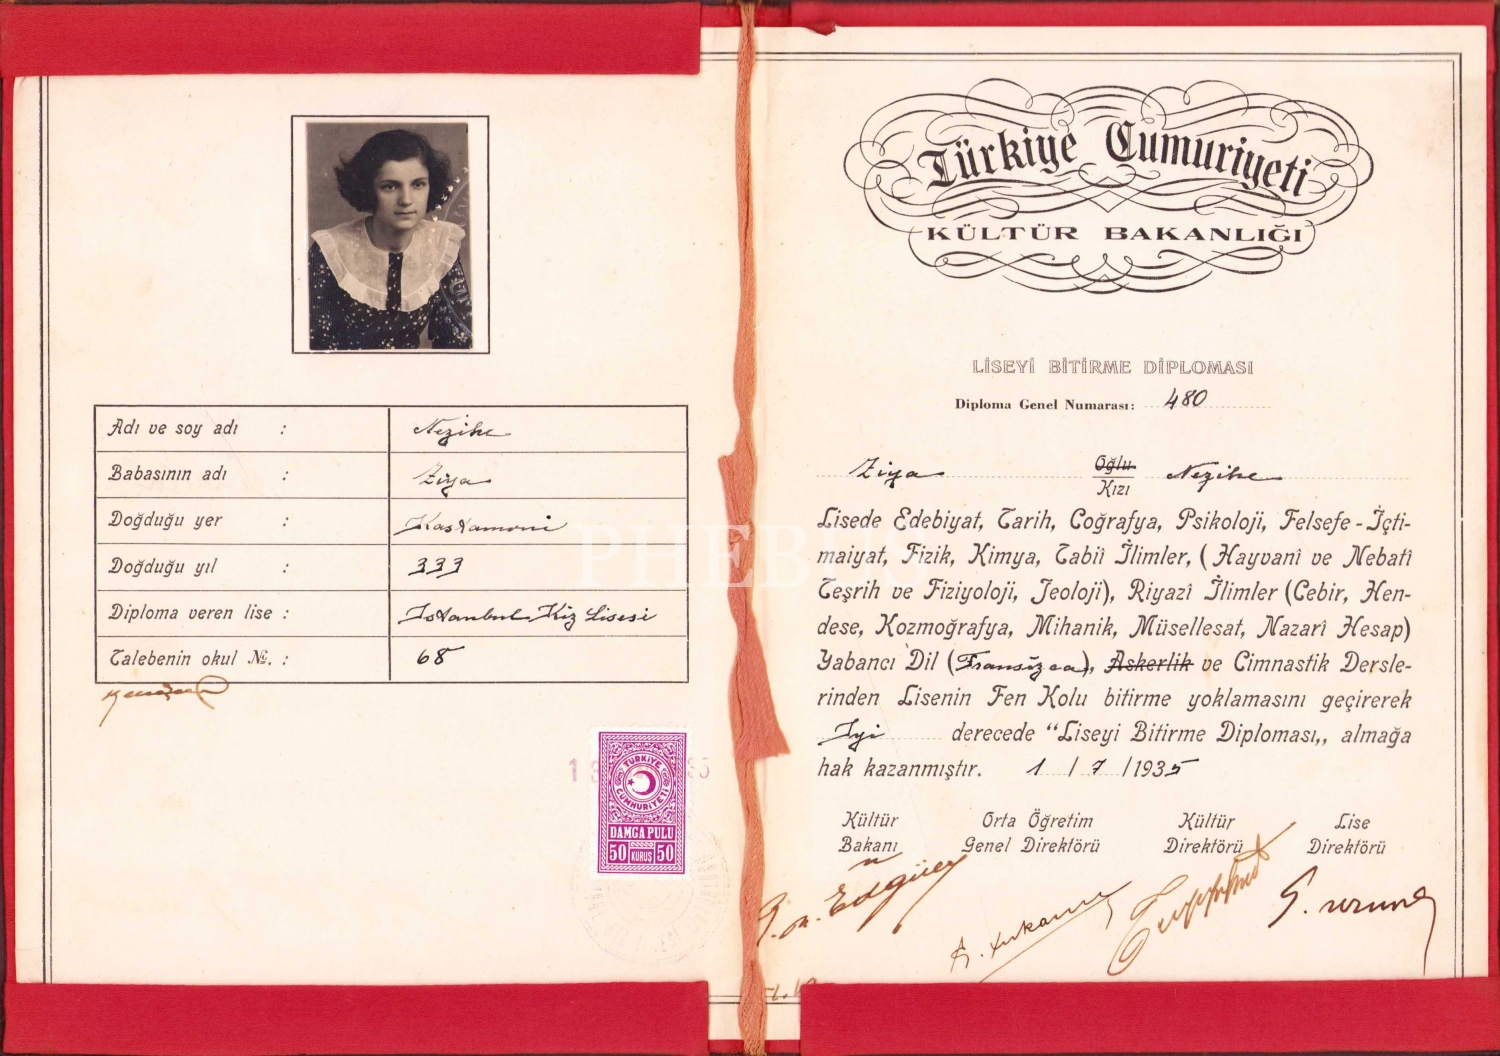 Adı ve soy adı : Nezihe
Babasının adı : Ziya
Doğduğu yer : Kastamoni
Doğduğu yıl : 333
Diploma veren lise : İstanbul Kız Lisesi
Talebenin okul №. : 68
TÜRKİYE
CUMHURİYETİ
DAMGA PULU
50 KURUŞ 50
Türkiye Cumuriyeti
KÜLTÜR BAKANLIĞI
LİSEYİ BİTİRME DİPLOMASI
Diploma Genel Numarası: 480
Ziya Oğlu Nezihe
Kızı
Lisede Edebiyat, Tarih, Coğrafya, Psikoloji, Felsefe - İçti-
maiyat, Fizik, Kimya, Tabiî İlimler, (Hayvanî ve Nebatî
Teşrih ve Fiziyoloji, Jeoloji), Riyazî İlimler (Cebir, Hen-
dese, Kozmoğrafya, Mihanik, Müsellesat, Nazarî Hesap)
Yabancı Dil (Fransızca), Askerlik ve Cimnastik Dersle-
rinden Lisenin Fen Kolu bitirme yoklamasını geçirerek
İyi derecede “Liseyi Bitirme Diploması,, almağa
hak kazanmıştır. 1 / 7 / 1935
Kültür Orta Öğretim Kültür Lise
Bakanı Genel Direktörü Direktörü Direktörü
PHEBUS